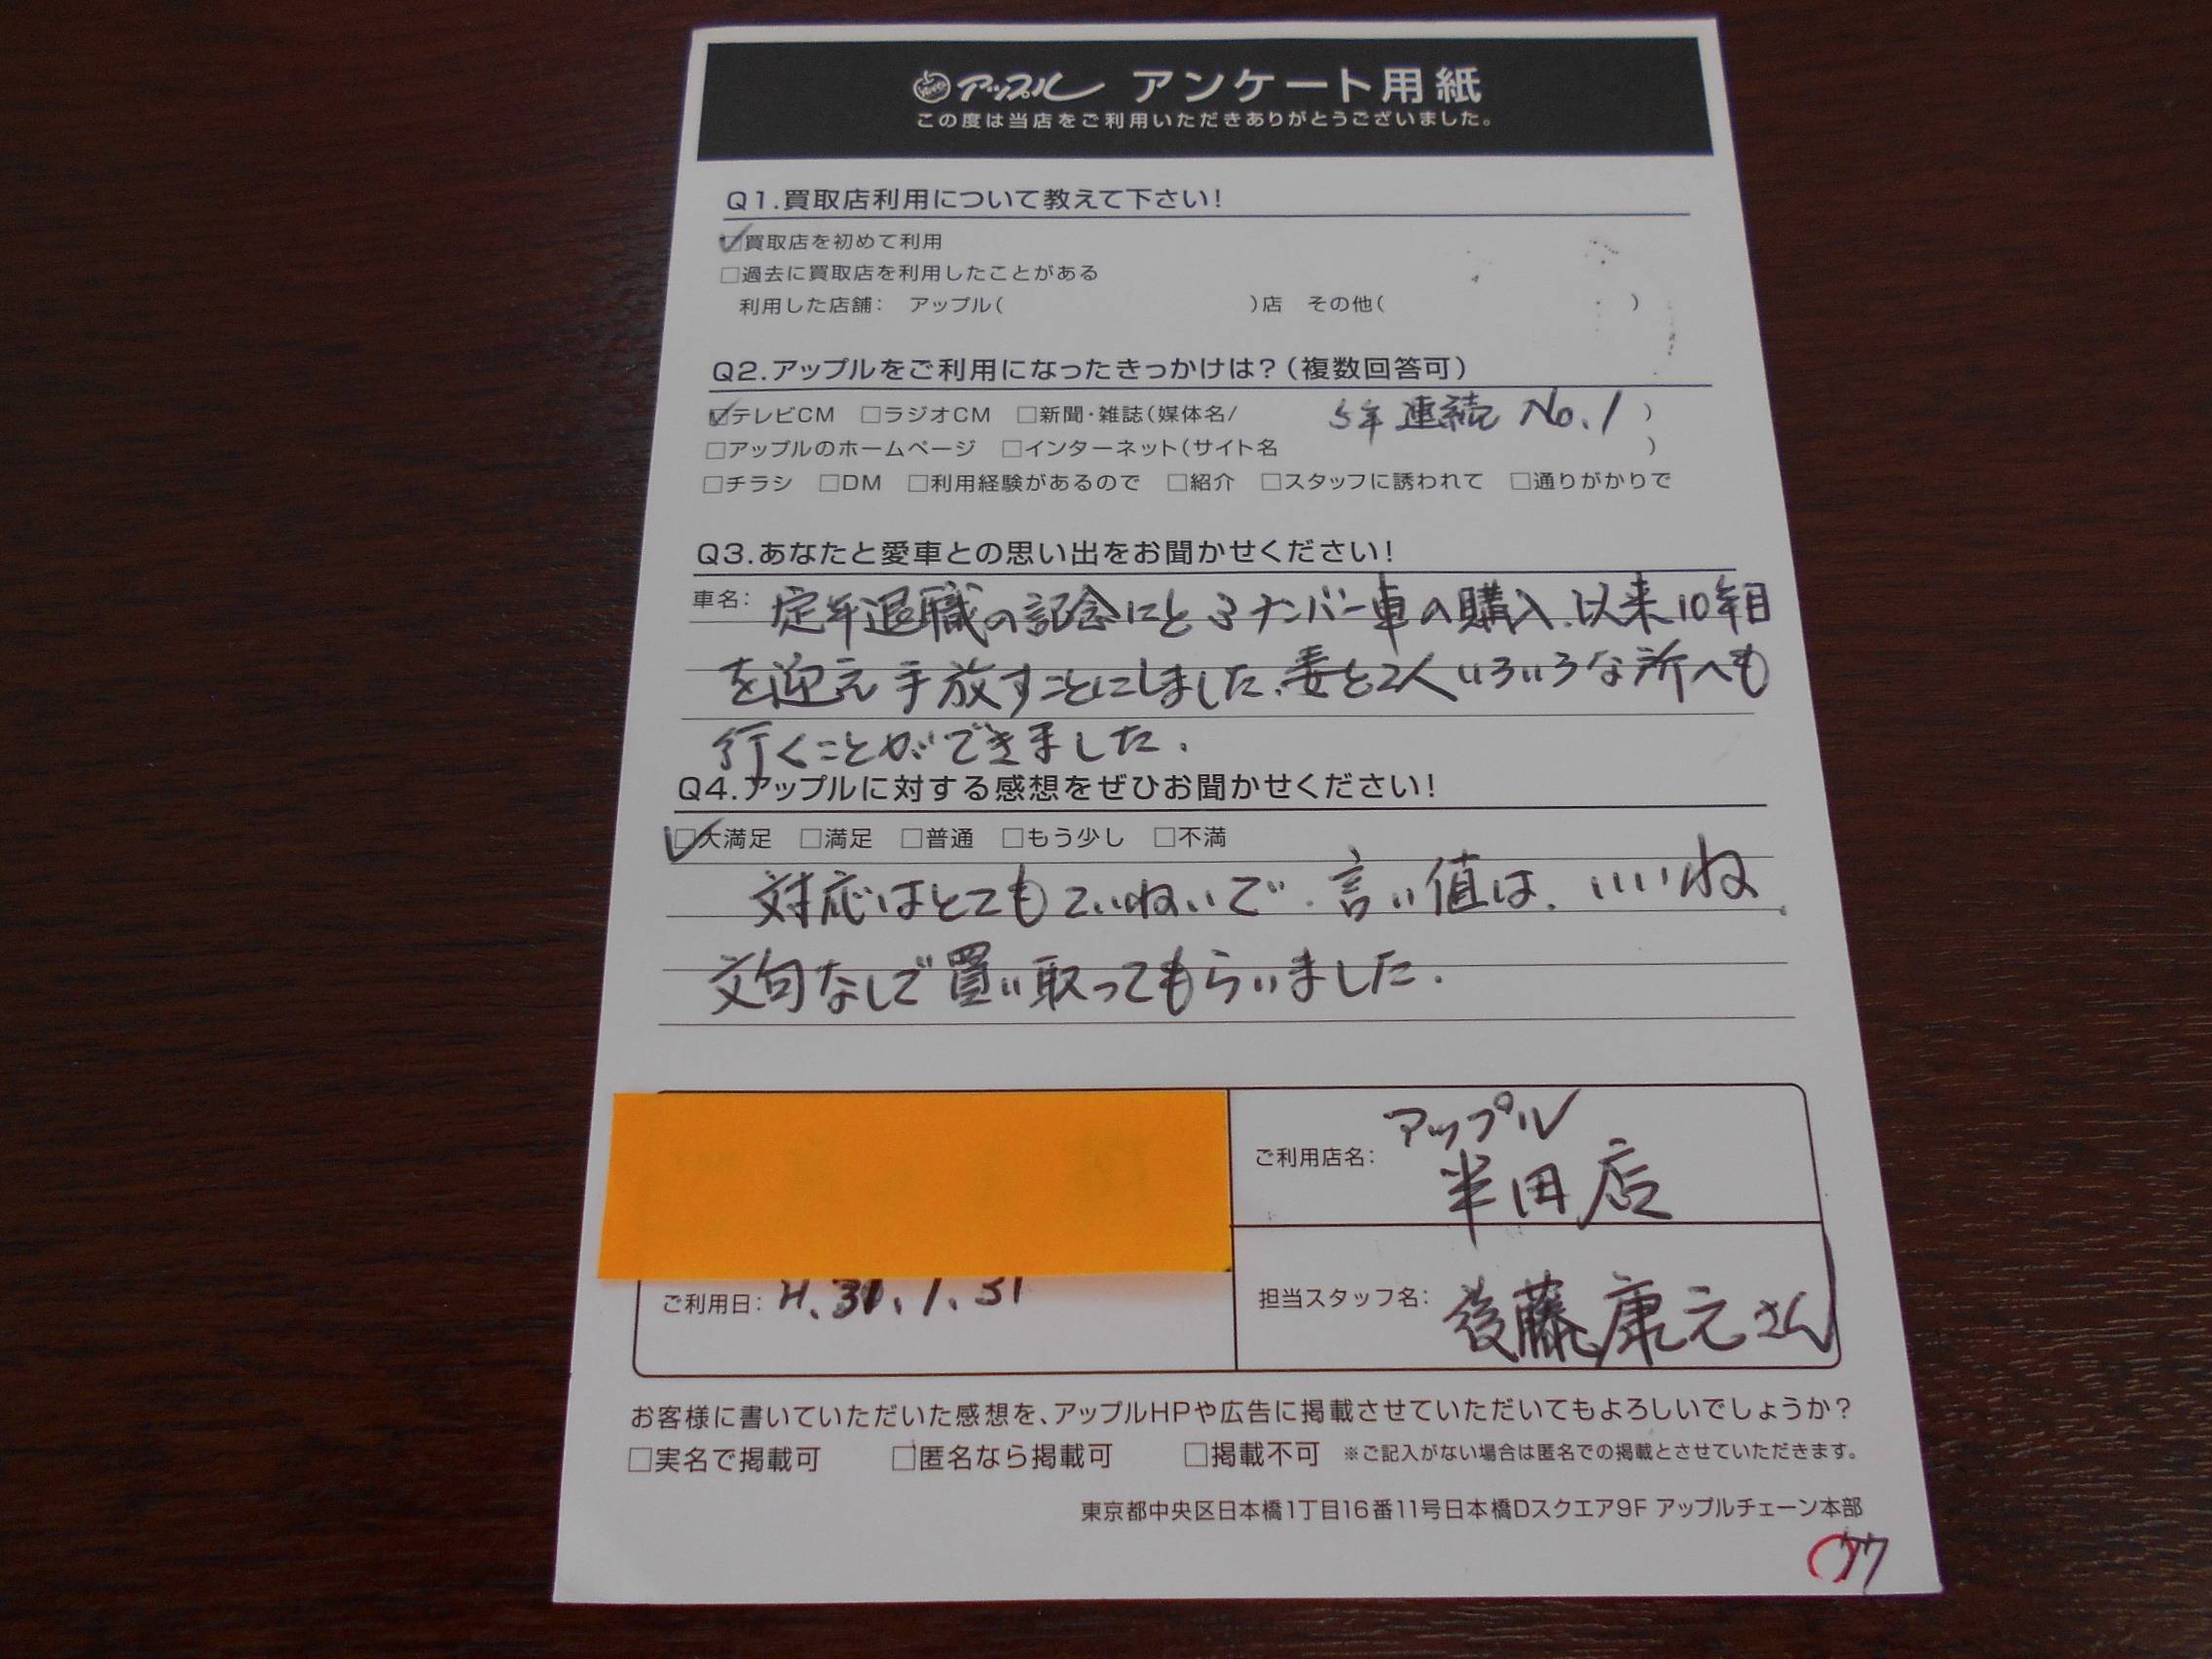 アップル アンケート用紙
この度は当店をご利用いただきありがとうございました。
Q1.買取店利用について教えて下さい！
☑買取店を初めて利用
□過去に買取店を利用したことがある
利用した店舗： アップル( )店 その他( )
Q2.アップルをご利用になったきっかけは？(複数回答可)
☑テレビCM □ラジオCM □新聞・雑誌(媒体名/ 5年連続 No.1 )
□アップルのホームページ □インターネット(サイト名 )
□チラシ □DM □利用経験があるので □紹介 □スタッフに誘われて □通りがかりで
Q3.あなたと愛車との思い出をお聞かせください！
車名： 定年退職の記念にと3ナンバー車の購入.以来10年目
を迎え手放すことにしました.妻と2人いろいろな所へも
行くことができました.
Q4.アップルに対する感想をぜひお聞かせください！
☑大満足 □満足 □普通 □もう少し □不満
対応はとてもていねいで.言い値は.いいね.
文句なしで買い取ってもらいました.
ご利用店名： アップル
半田店
ご利用日： H.31.1.31
担当スタッフ名： 後藤康元さん
お客様に書いていただいた感想を、アップルHPや広告に掲載させていただいてもよろしいでしょうか？
□実名で掲載可 □匿名なら掲載可 □掲載不可 ※ご記入がない場合は匿名での掲載とさせていただきます。
東京都中央区日本橋1丁目16番11号日本橋Dスクエア9F アップルチェーン本部